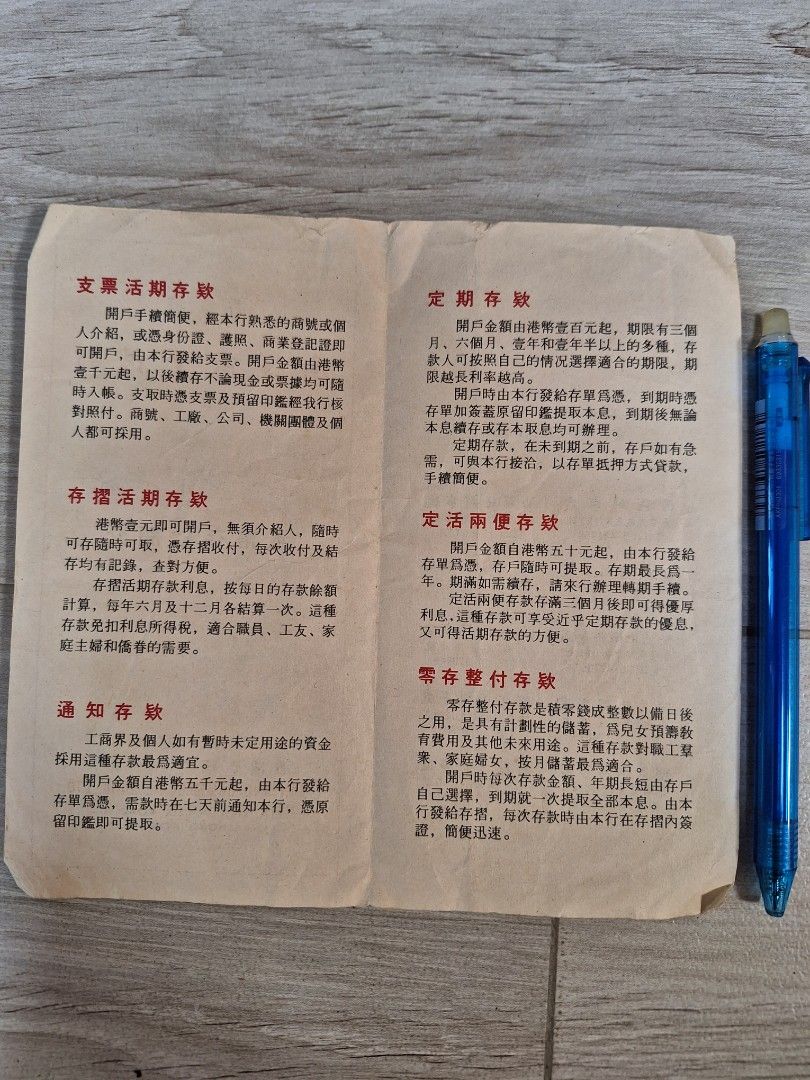 支票活期存欵
開戶手續簡便，經本行熟悉的商號或個
人介紹，或憑身份證、護照、商業登記證即
可開戶，由本行發給支票。開戶金額由港幣
壹千元起，以後續存不論現金或票據均可隨
時入帳。支取時憑支票及預留印鑑經我行核
對照付。商號、工廠、公司、機關團體及個
人都可採用。
存摺活期存欵
港幣壹元即可開戶，無須介紹人，隨時
可存隨時可取，憑存摺收付，每次收付及結
存均有記錄，查對方便。
存摺活期存款利息，按每日的存款餘額
計算，每年六月及十二月各結算一次。這種
存款免扣利息所得稅，適合職員、工友、家
庭主婦和僑眷的需要。
通知存欵
工商界及個人如有暫時未定用途的資金
採用這種存款最爲適宜。
開戶金額自港幣五千元起，由本行發給
存單爲憑，需款時在七天前通知本行，憑原
留印鑑即可提取。
定期存欵
開戶金額由港幣壹百元起，期限有三個
月、六個月、壹年和壹年半以上的多種，存
款人可按照自己的情況選擇適合的期限，期
限越長利率越高。
開戶時由本行發給存單爲憑，到期時憑
存單加簽蓋原留印鑑提取本息，到期後無論
本息續存或存本取息均可辦理。
定期存款，在未到期之前，存戶如有急
需，可與本行接洽，以存單抵押方式貸款，
手續簡便。
定活兩便存欵
開戶金額自港幣五十元起，由本行發給
存單爲憑，存戶隨時可提取。存期最長爲一
年。期滿如需續存，請來行辦理轉期手續。
定活兩便存款存滿三個月後即可得優厚
利息，這種存款可享受近乎定期存款的優息，
又可得活期存款的方便。
零存整付存欵
零存整付存款是積零錢成整數以備日後
之用，是具有計劃性的儲蓄，爲兒女預籌敎
育費用及其他未來用途。這種存款對職工羣
衆、家庭婦女，按月儲蓄最爲適合。
開戶時每次存款金額、年期長短由存戶
自己選擇，到期就一次提取全部本息。由本
行發給存摺，每次存款時由本行在存摺內簽
證，簡便迅速。